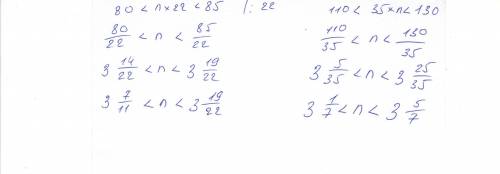 80 < n×22 < 85 /: 22
80/22 < n < 85/22
3 14/22 < n < 3 19/22
3 7/11 < n < 3 19/22
110 < 35×n < 130
110/35 < n < 130/35
3 5/35 < n < 3 25/35
3 1/7 < n < 3 5/7